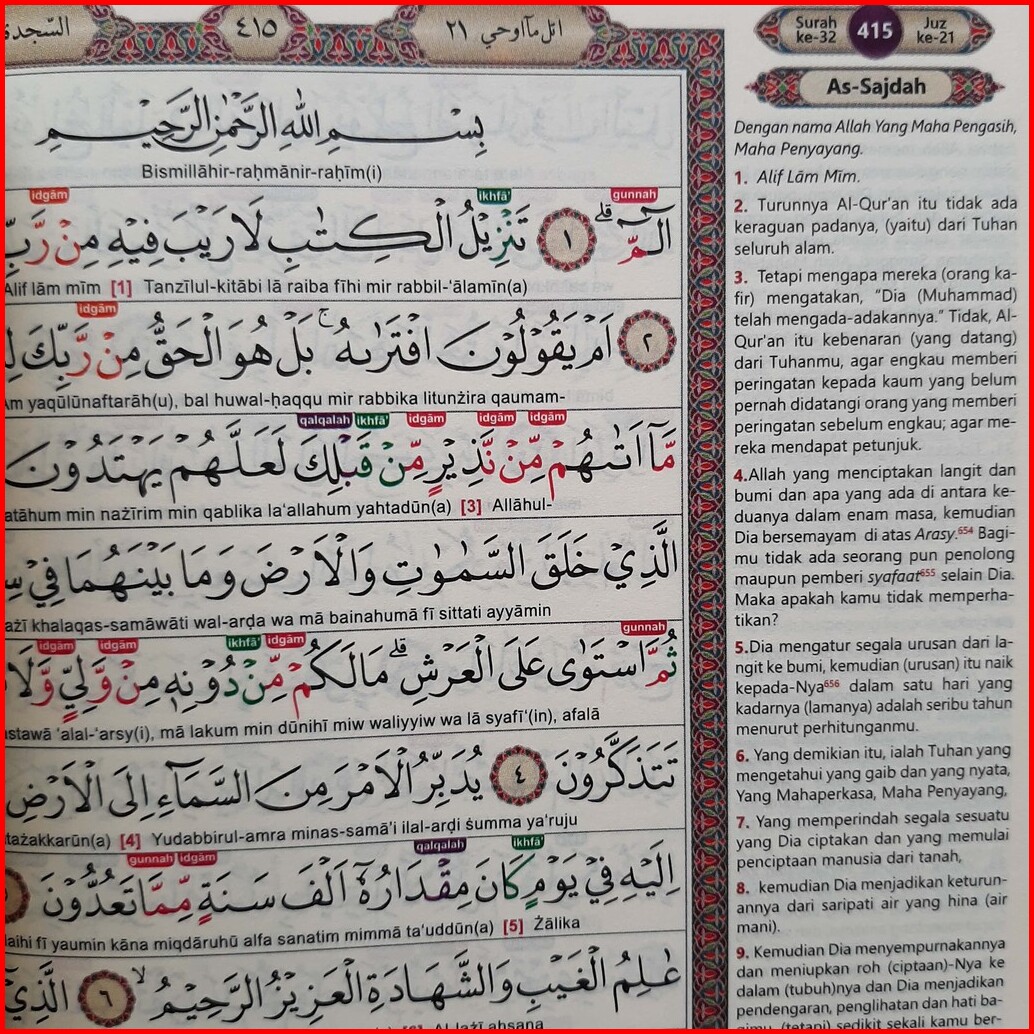 السّجدة ٤١٥ اتل مآ اوحي ٢١
بِسْمِ اللّٰهِ الرَّحْمٰنِ الرَّحِيْمِ
Bismillāhir-raḥmānir-raḥīm(i)
gunnah ikhfā' idgām
الۤمّۤ ۗ ١ تَنْزِيْلُ الْكِتٰبِ لَا رَيْبَ فِيْهِ مِنْ رَّبِّ
Alif lām mīm [1] Tanzīlul-kitābi lā raiba fīhi mir rabbil-‘ālamīn(a)
idgām
٢ اَمْ يَقُوْلُوْنَ افْتَرٰىهُ ۚ بَلْ هُوَ الْحَقُّ مِنْ رَّبِّكَ
Am yaqūlūnaftarāh(u), bal huwal-ḥaqqu mir rabbika litunżira qaumam-
idgām idgām idgām ikhfā' qalqalah
مَّآ اَتٰىهُمْ مِّنْ نَّذِيْرٍ مِّنْ قَبْلِكَ لَعَلَّهُمْ يَهْتَدُوْنَ
atāhum min nażīrim min qablika la‘allahum yahtadūn(a) [3] Allāhul-
الَّذِيْ خَلَقَ السَّمٰوٰتِ وَالْاَرْضَ وَمَا بَيْنَهُمَا فِيْ
ażī khalaqas-samāwāti wal-arḍa wa mā bainahumā fī sittati ayyāmin
gunnah idgām ikhfā' idgām idgām
ثُمَّ اسْتَوٰى عَلَى الْعَرْشِ ۗ مَا لَكُمْ مِّنْ دُوْنِهٖ مِنْ وَّلِيٍّ وَّلَا
astawā ‘alal-‘arsy(i), mā lakum min dūnihī miw waliyyiw wa lā syafī‘(in), afalā
تَتَذَكَّرُوْنَ ٤ يُدَبِّرُ الْاَمْرَ مِنَ السَّمَاۤءِ اِلَى الْاَرْضِ
tażakkarūn(a) [4] Yudabbirul-amra minas-samā'i ilal-arḍi ṡumma ya‘ruju
ikhfā' qalqalah idgām gunnah
اِلَيْهِ فِيْ يَوْمٍ كَانَ مِقْدَارُهٗٓ اَلْفَ سَنَةٍ مِّمَّا تَعُدُّوْنَ
laihi fī yaumin kāna miqdāruhū alfa sanatim mimmā ta‘uddūn(a) [5] Żālika
عٰلِمُ الْغَيْبِ وَالشَّهَادَةِ الْعَزِيْزُ الرَّحِيْمُ ۙ ٦ الَّذِيْٓ
Surah ke-32 415 Juz ke-21
As-Sajdah
Dengan nama Allah Yang Maha Pengasih,
Maha Penyayang.
1. Alif Lām Mīm.
2. Turunnya Al-Qur'an itu tidak ada
keraguan padanya, (yaitu) dari Tuhan
seluruh alam.
3. Tetapi mengapa mereka (orang ka-
fir) mengatakan, "Dia (Muhammad)
telah mengada-adakannya." Tidak, Al-
Qur'an itu kebenaran (yang datang)
dari Tuhanmu, agar engkau memberi
peringatan kepada kaum yang belum
pernah didatangi orang yang memberi
peringatan sebelum engkau; agar me-
reka mendapat petunjuk.
4.Allah yang menciptakan langit dan
bumi dan apa yang ada di antara ke-
duanya dalam enam masa, kemudian
Dia bersemayam di atas Arasy.654 Bagi-
mu tidak ada seorang pun penolong
maupun pemberi syafaat655 selain Dia.
Maka apakah kamu tidak memperha-
tikan?
5.Dia mengatur segala urusan dari la-
ngit ke bumi, kemudian (urusan) itu naik
kepada-Nya656 dalam satu hari yang
kadarnya (lamanya) adalah seribu tahun
menurut perhitunganmu.
6. Yang demikian itu, ialah Tuhan yang
mengetahui yang gaib dan yang nyata,
Yang Mahaperkasa, Maha Penyayang,
7. Yang memperindah segala sesuatu
yang Dia ciptakan dan yang memulai
penciptaan manusia dari tanah,
8. kemudian Dia menjadikan keturun-
annya dari saripati air yang hina (air
mani).
9. Kemudian Dia menyempurnakannya
dan meniupkan roh (ciptaan)-Nya ke
dalam (tubuh)nya dan Dia menjadikan
pendengaran, penglihatan dan hati ba-
gimu, (tetapi) sedikit sekali kamu ber-